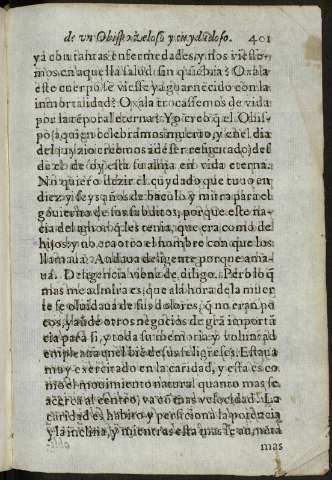 de vn Obispo zeloso y cuydadoso. 401
ya con tantas enfermedades, y nos viesse-
mos en aquella salud sin quiebra? Oxala
este cuerpo se viesse ya guarnecido con la
inmortalidad? Oxala trocassemos de vida
por la tẽporal eterna? Yo creo q̃ el Obis-
po, a quien celebramos muerto, y en el dia
del juyzio creemos a de ser resucitado, des
de el de oy esta su alma en vida eterna.
No quiero dezir el cuydado que tuuo en
diez y seys años de baculo y mitra para el
gouierno de sus subditos, porque este na-
cia del amor q̃ les tenia, que era como de
hijos: y no era otro el nombre con que los
llamaua. Andaua diligente porque ama-
ua. Deligencia viene de diligo. Pero lo q̃
mas me admira es: que a la hora de la muer
te se oluidaua de sus dolores, q̃ no eran po
cos, y aũ de otros negocios de grã importã
cia para si, y toda su memoria y voluntad
empleaua en el bien de sus feligreses. Estaua
muy exercitado en la caridad, y esta es co
mo el mouimiento natural quanto mas se
acerca al centro, va co mas velocidad. La
caridad es habito y perficiona la potencia
y la inclina, y mientras esta mas
mas